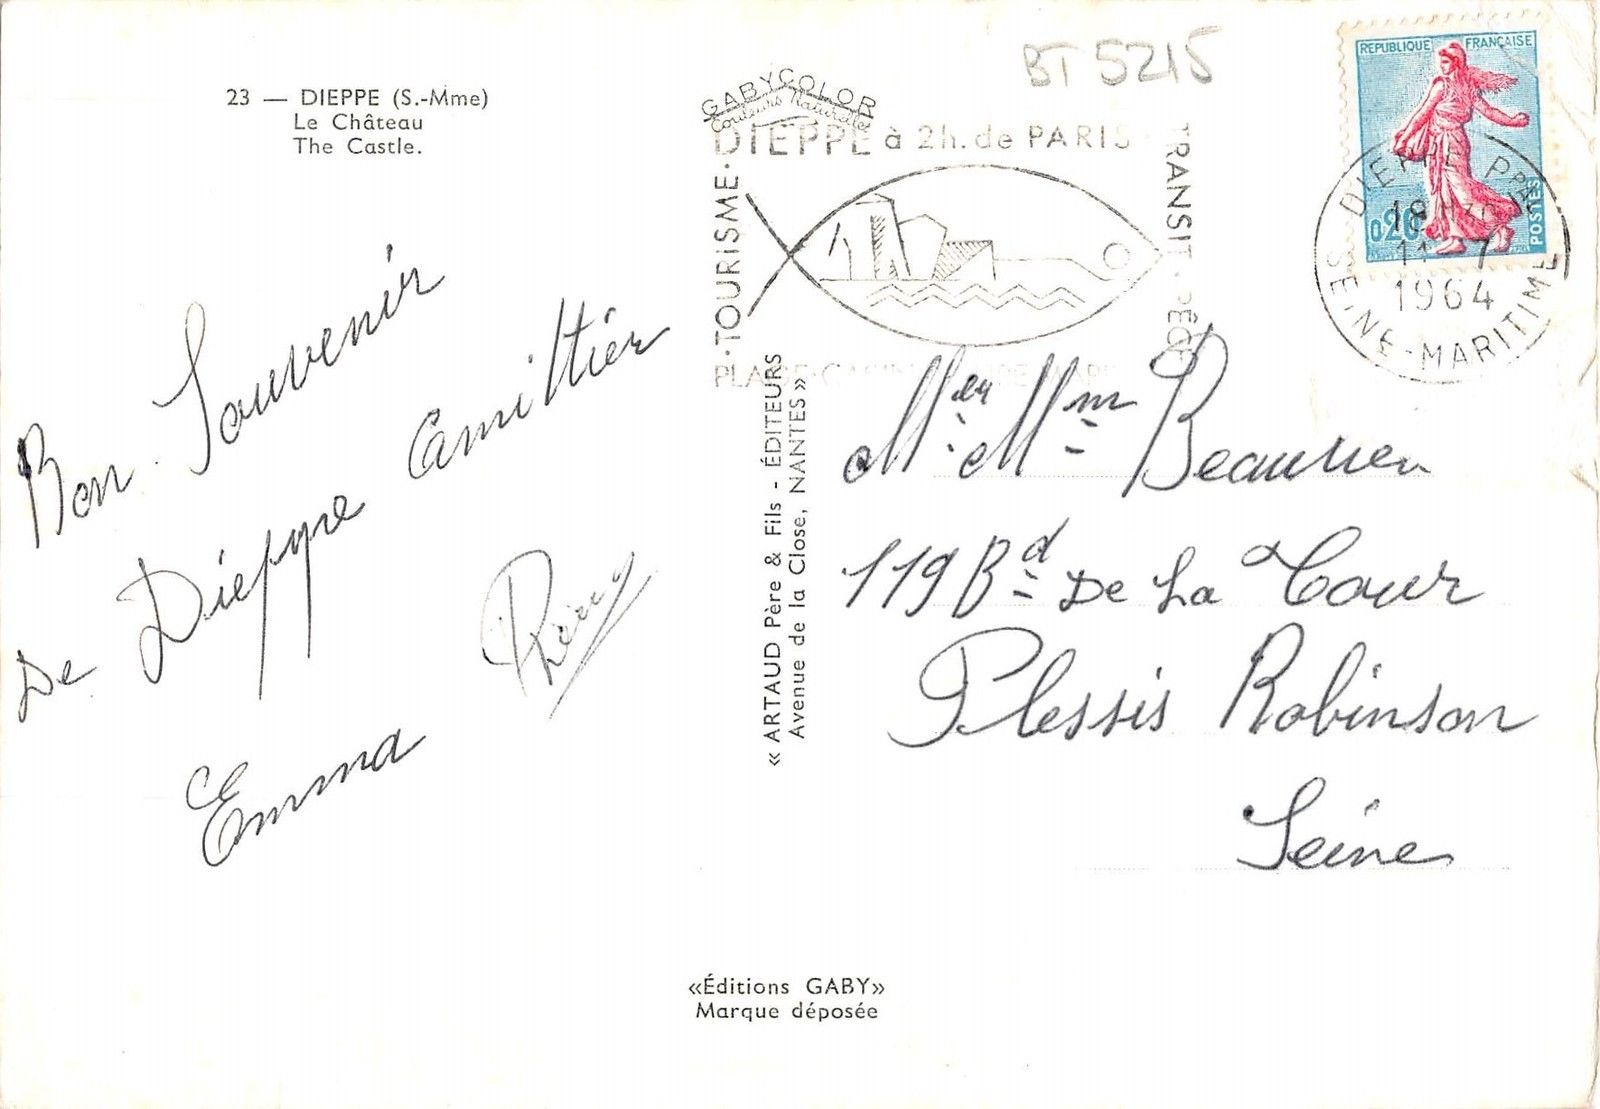 23 — DIEPPE (S.-Mme)
Le Château
The Castle.
BT 5215
GABYCOLOR
Couleurs Naturelles
DIEPPE à 2h. de PARIS
TOURISME
TRANSIT · PÊCHE
PLAGE · CASINO
REPUBLIQUE FRANÇAISE
0,20
POSTES
DIEPPE PPAL
18H30
11-7
1964
SEINE-MARITIME
Bon Souvenir
De Dieppe Amittier
Emma Rémy
« ARTAUD Père & Fils - ÉDITEURS
Avenue de la Close, NANTES »
Mr er Mme Beaulieu
119 Bd De La Tour
Plessis Robinson
Seine
«Éditions GABY»
Marque déposée